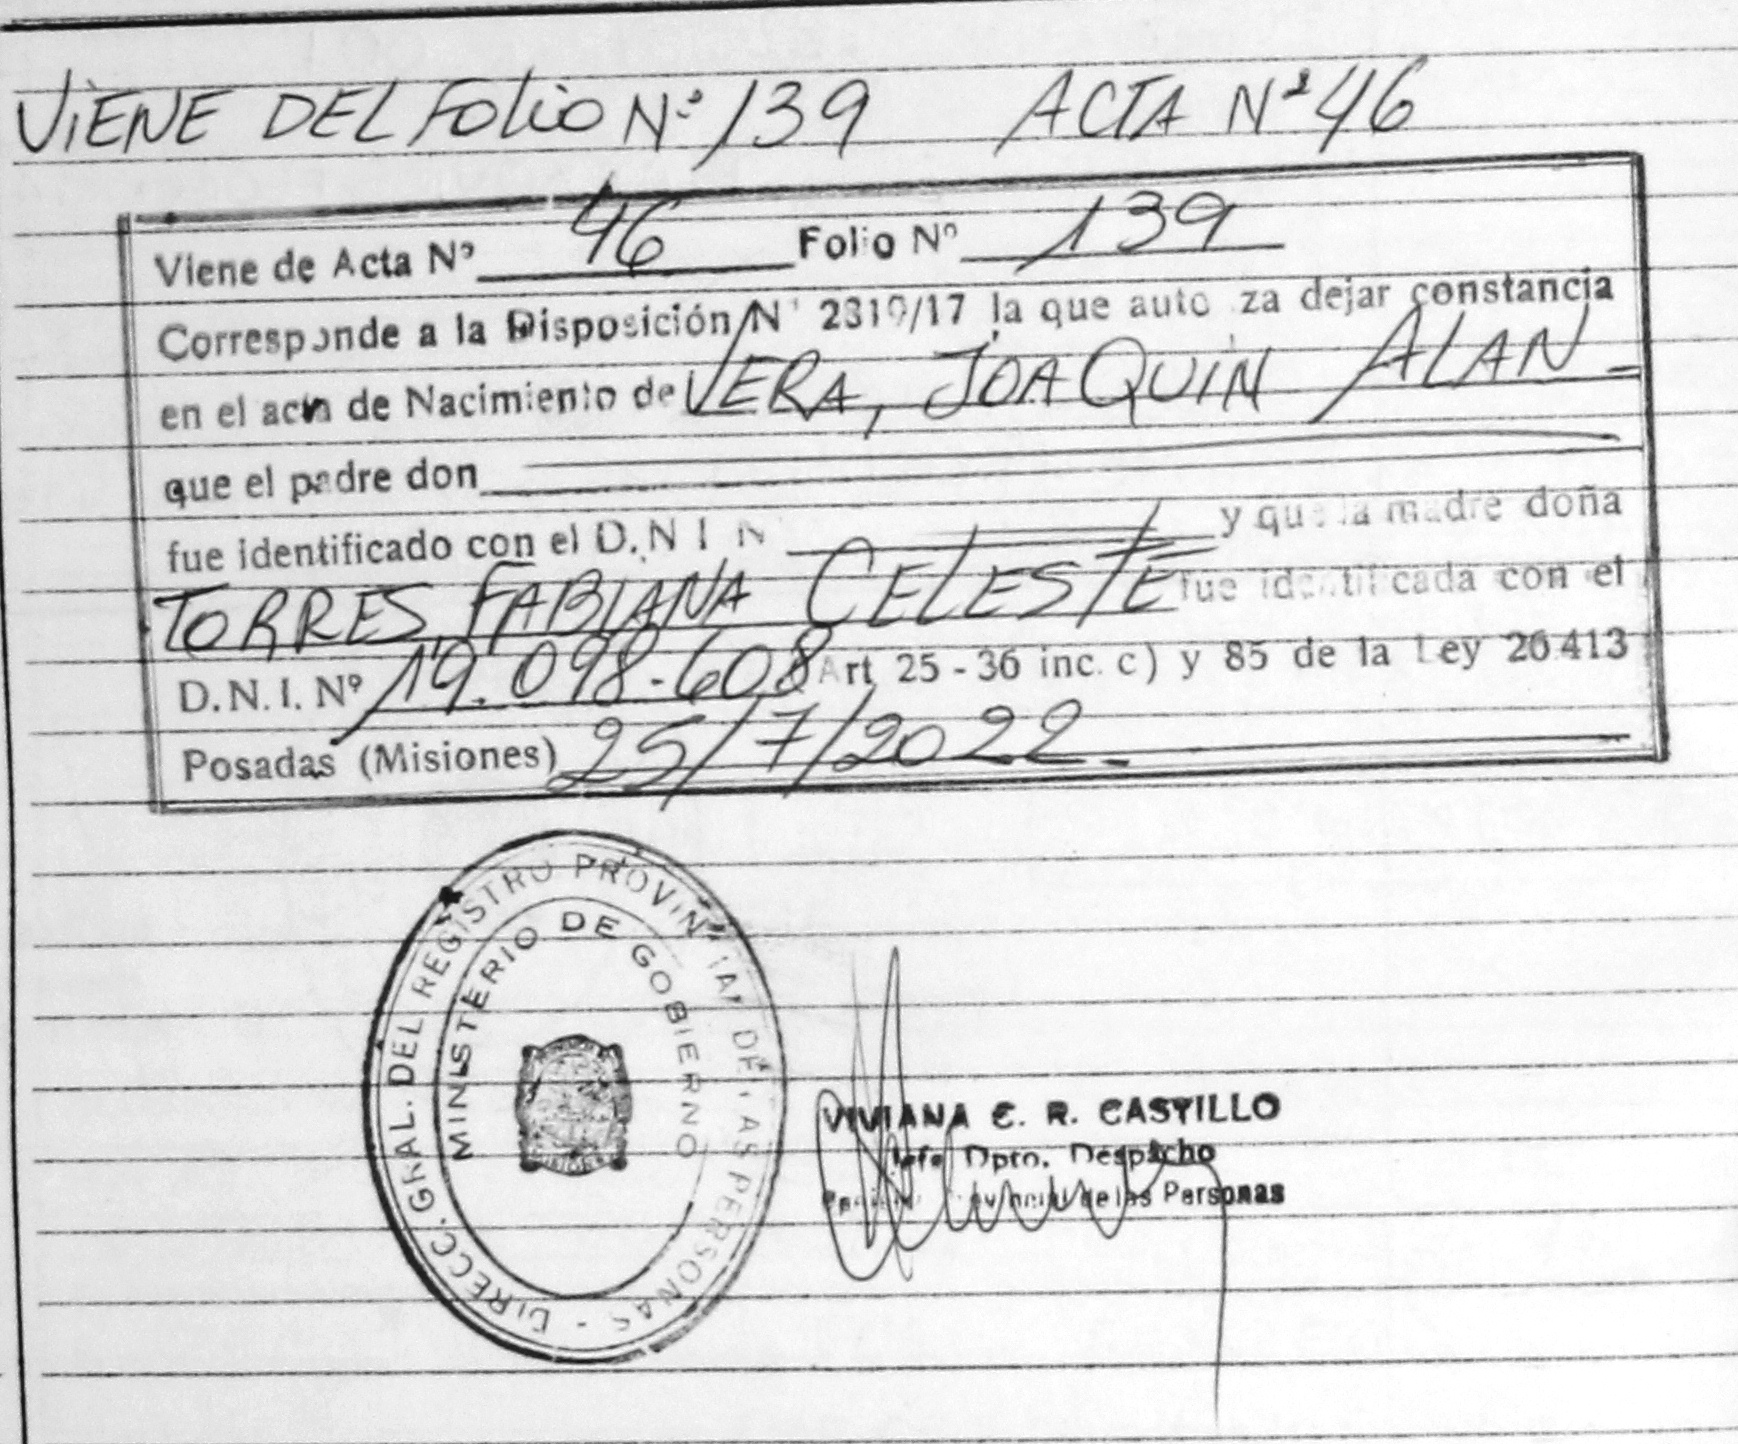 VIENE DEL FOLIO Nº 139 ACTA Nº 46
Viene de Acta Nº 46 Folio Nº 139
Corresponde a la Disposición N 2319/17 la que auto za dejar constancia
en el acta de Nacimiento de VERA, JOAQUIN ALAN
que el padre don
fue identificado con el D.N I N y que la madre doña
TORRES FABIANA CELESTE fue identificada con el
D.N.I. Nº 19.098.608 Art 25 - 36 inc. c) y 85 de la Ley 26.413
Posadas (Misiones) 25/7/2022.
DIRECC. GRAL. DEL REGISTRO PROVINCIAL DE LAS PERSONAS -
MINISTERIO DE GOBIERNO
VIVIANA C. R. CASTILLO
Jefe Dpto. Despacho
Provincial de las Personas